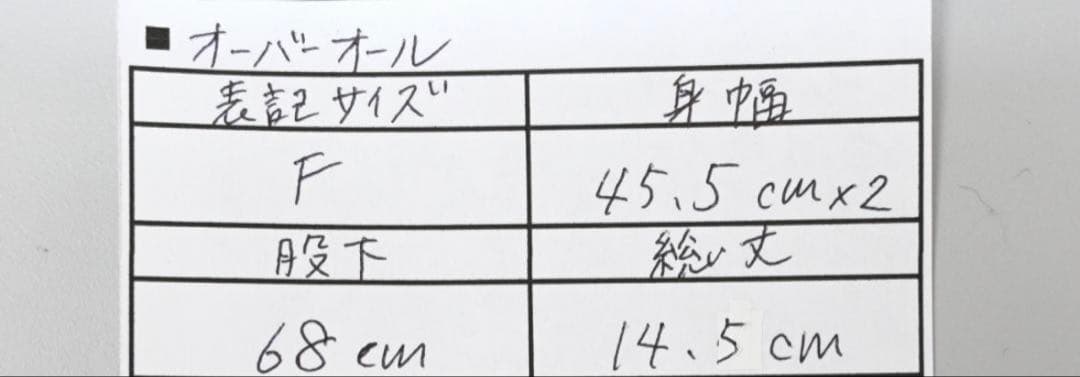 ■ オーバーオール
表記サイズ 身幅
F 45.5cm×2
股下 総丈
68cm 14.5cm